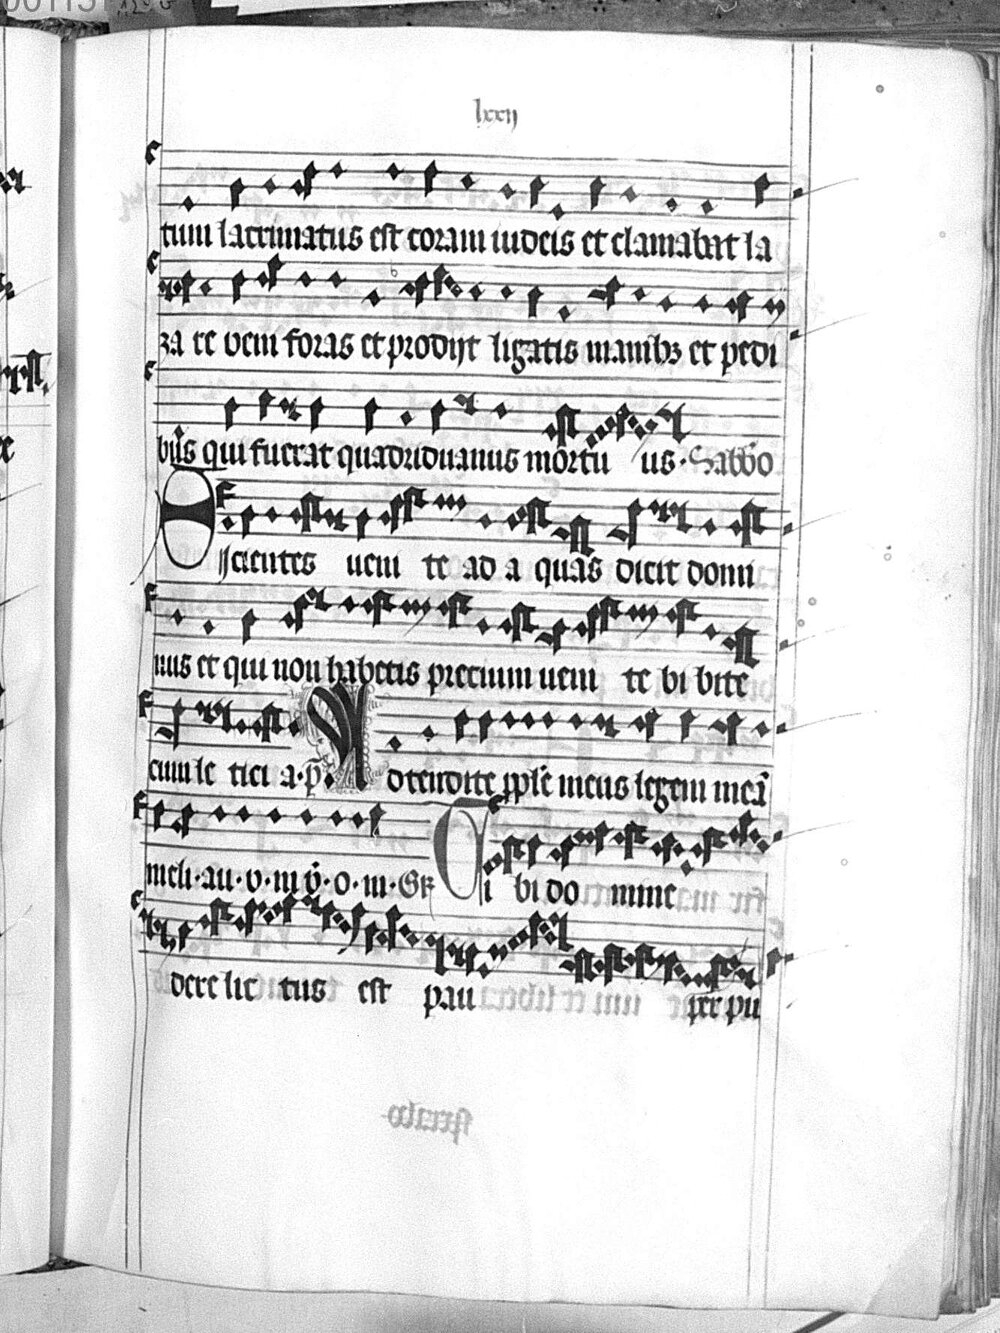 lxxij
tum lacrimatus est coram iudeis et clamabat la
za re veni foras et prodijt ligatis manibꝫ et pedi
bus qui fuerat quadriduanus mortu us · Sabbo
Sicientes veni te ad a quas dicit domi
nus et qui non habetis precium veni te bi bite
cum le tici a · p̄ · Adtendite pple meus legem meā
meli · au · v · m ꝟ · o · m · Gr̄ Ti bi do mine
dere lic tus est pau per pu